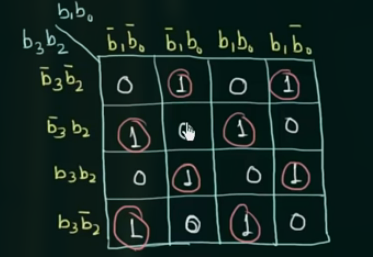 b₁b₀
b₃b₂ b̄₁b̄₀ b̄₁b₀ b₁b₀ b₁b̄₀
b̄₃b̄₂ 0 1 0 1
b̄₃b₂ 1 0 1 0
b₃b₂ 0 1 0 1
b₃b̄₂ 1 0 1 0